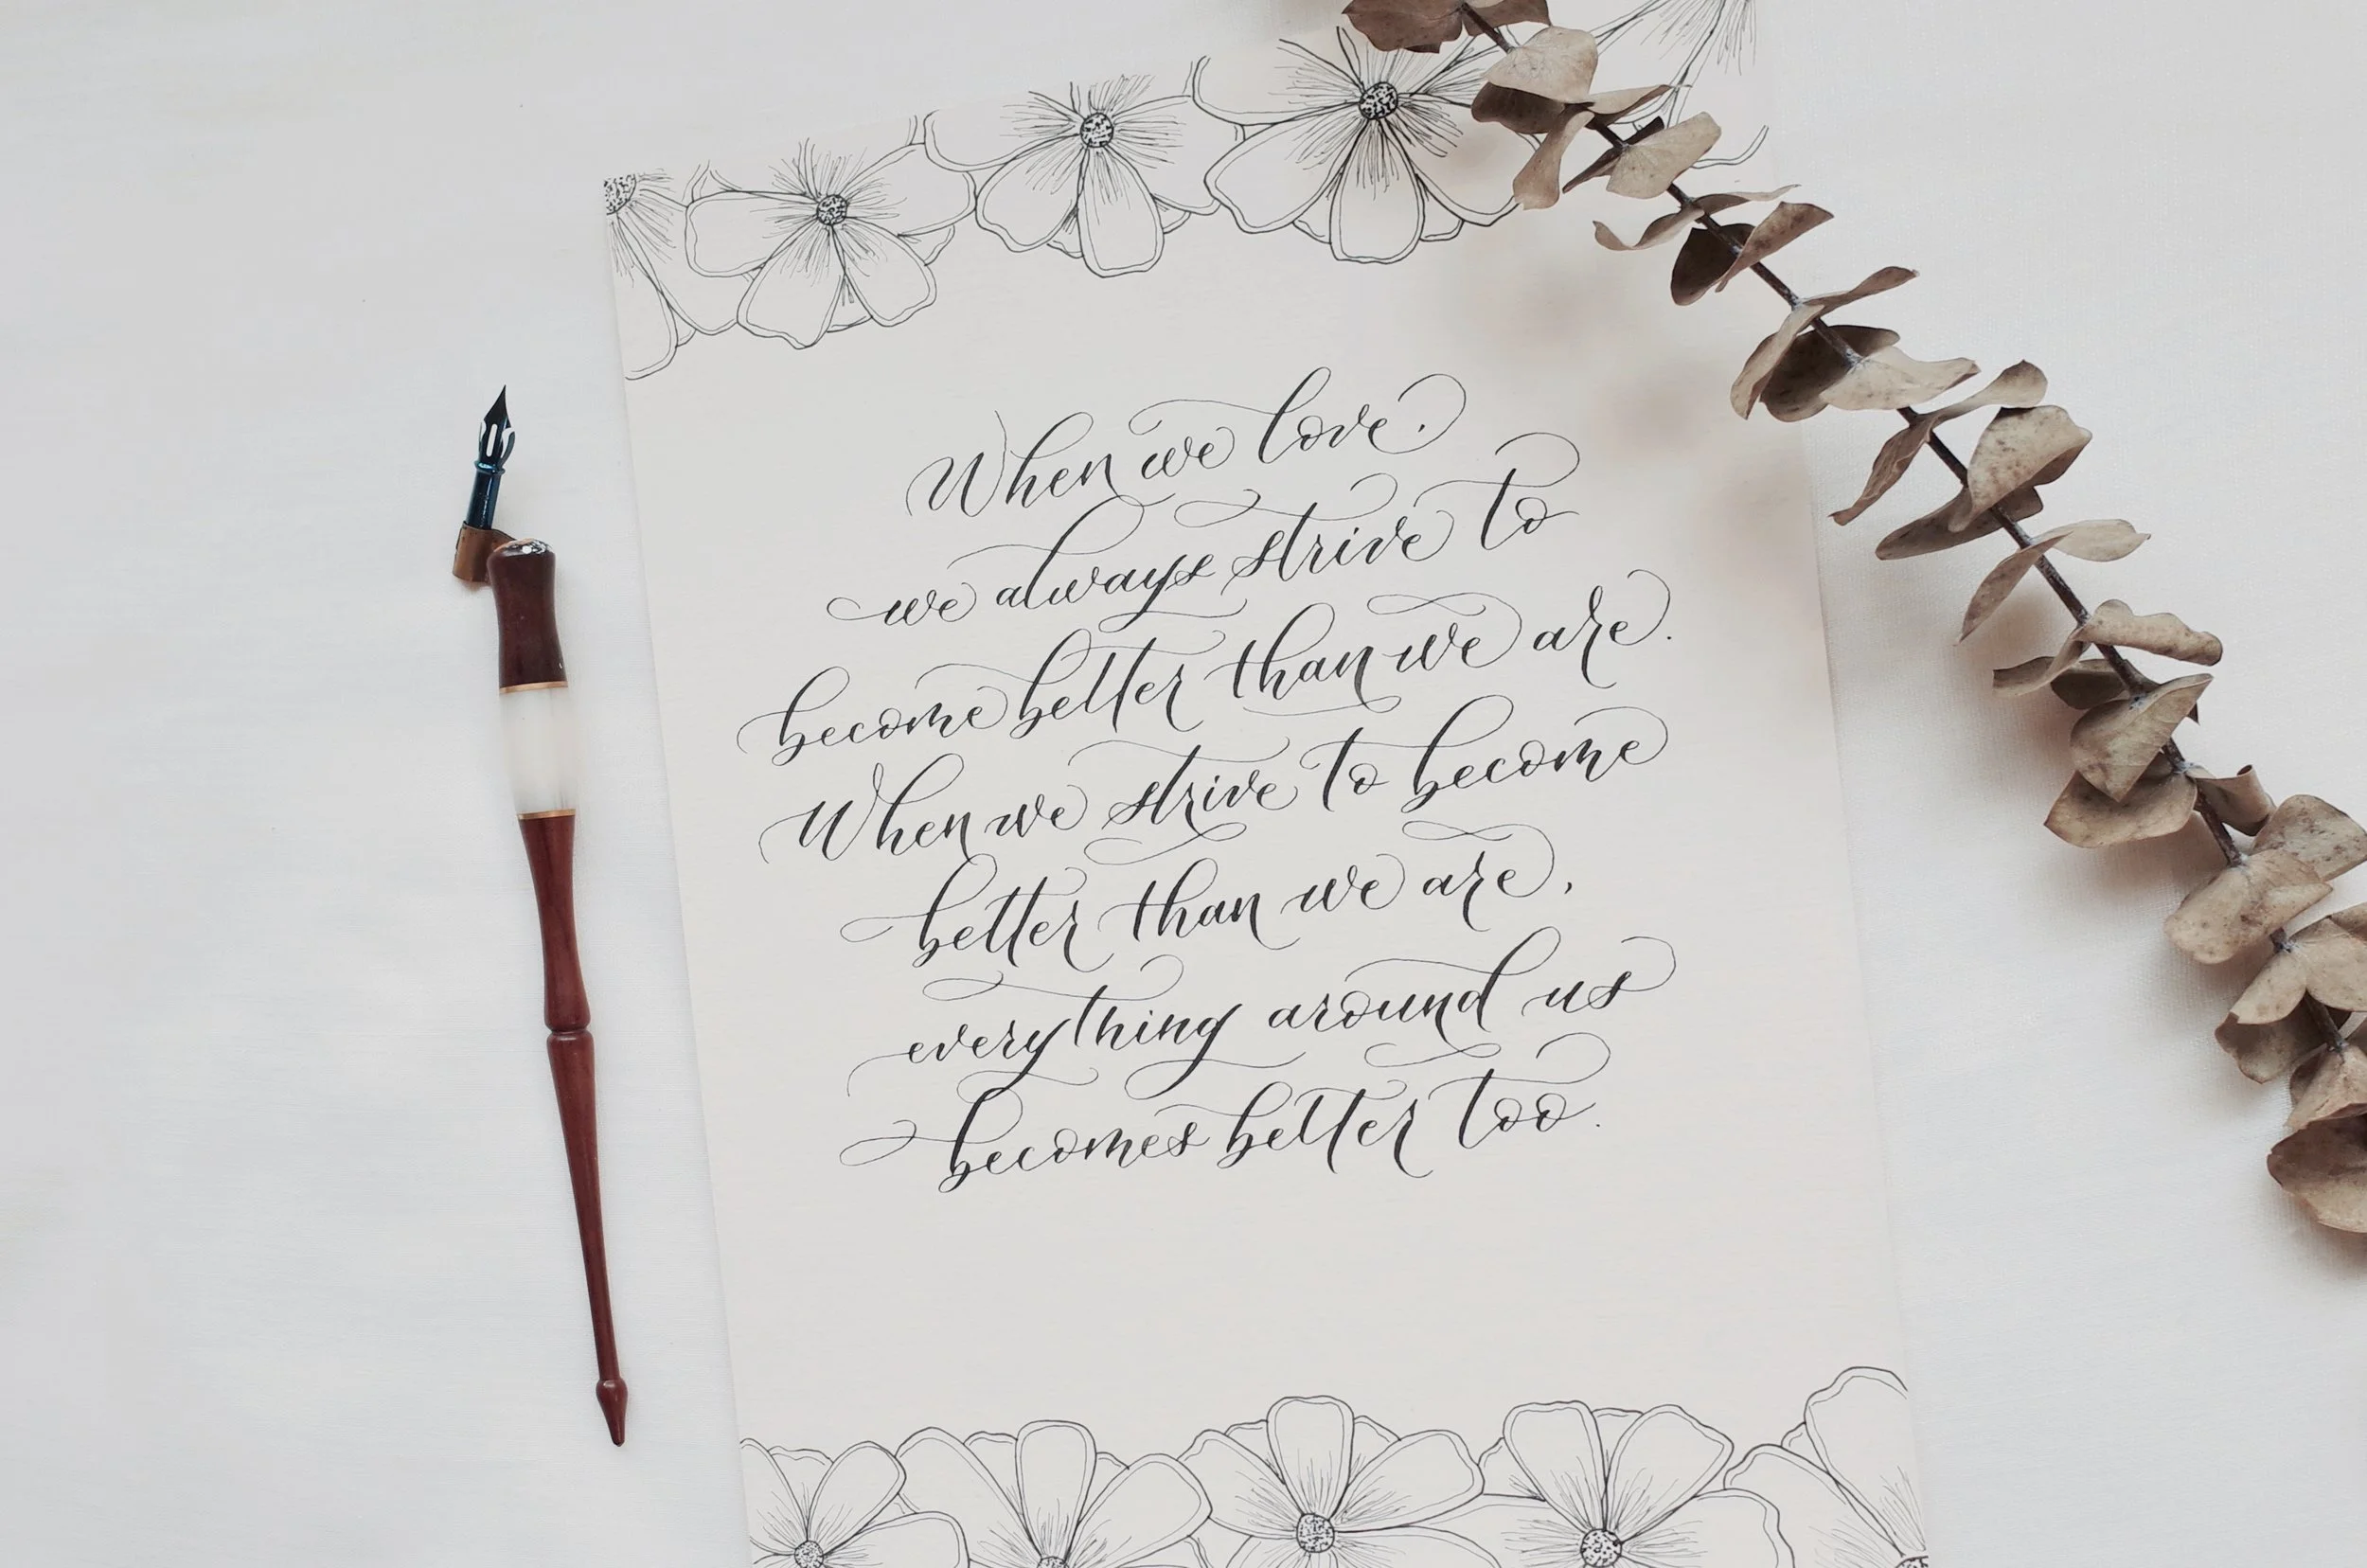 When we love.
we always strive to
become better than we are.
When we strive to become
better than we are,
everything around us
becomes better too.